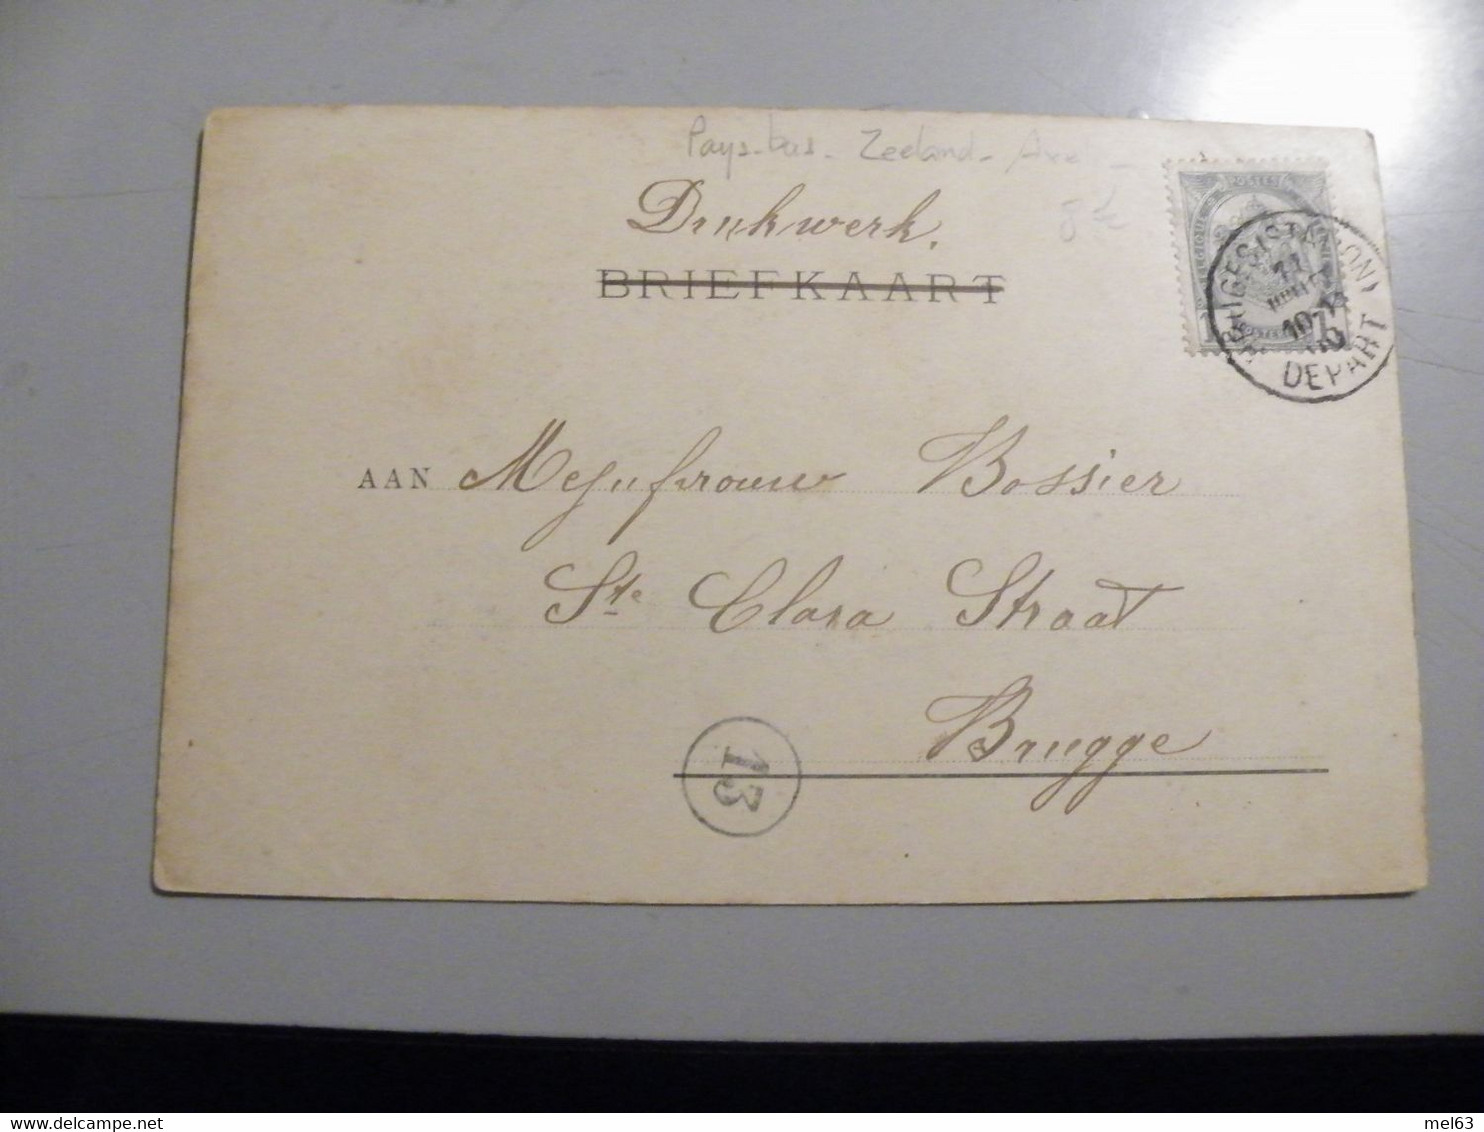 Pays-bas - Zeeland - Axel
8€
Drukwerk.
BRIEFKAART
POSTES
BRUGES (STATION)
DEPART
AAN Mejufrouw Bossier
Ste Clara Straat
Brugge
13
delcampe.net
mel63